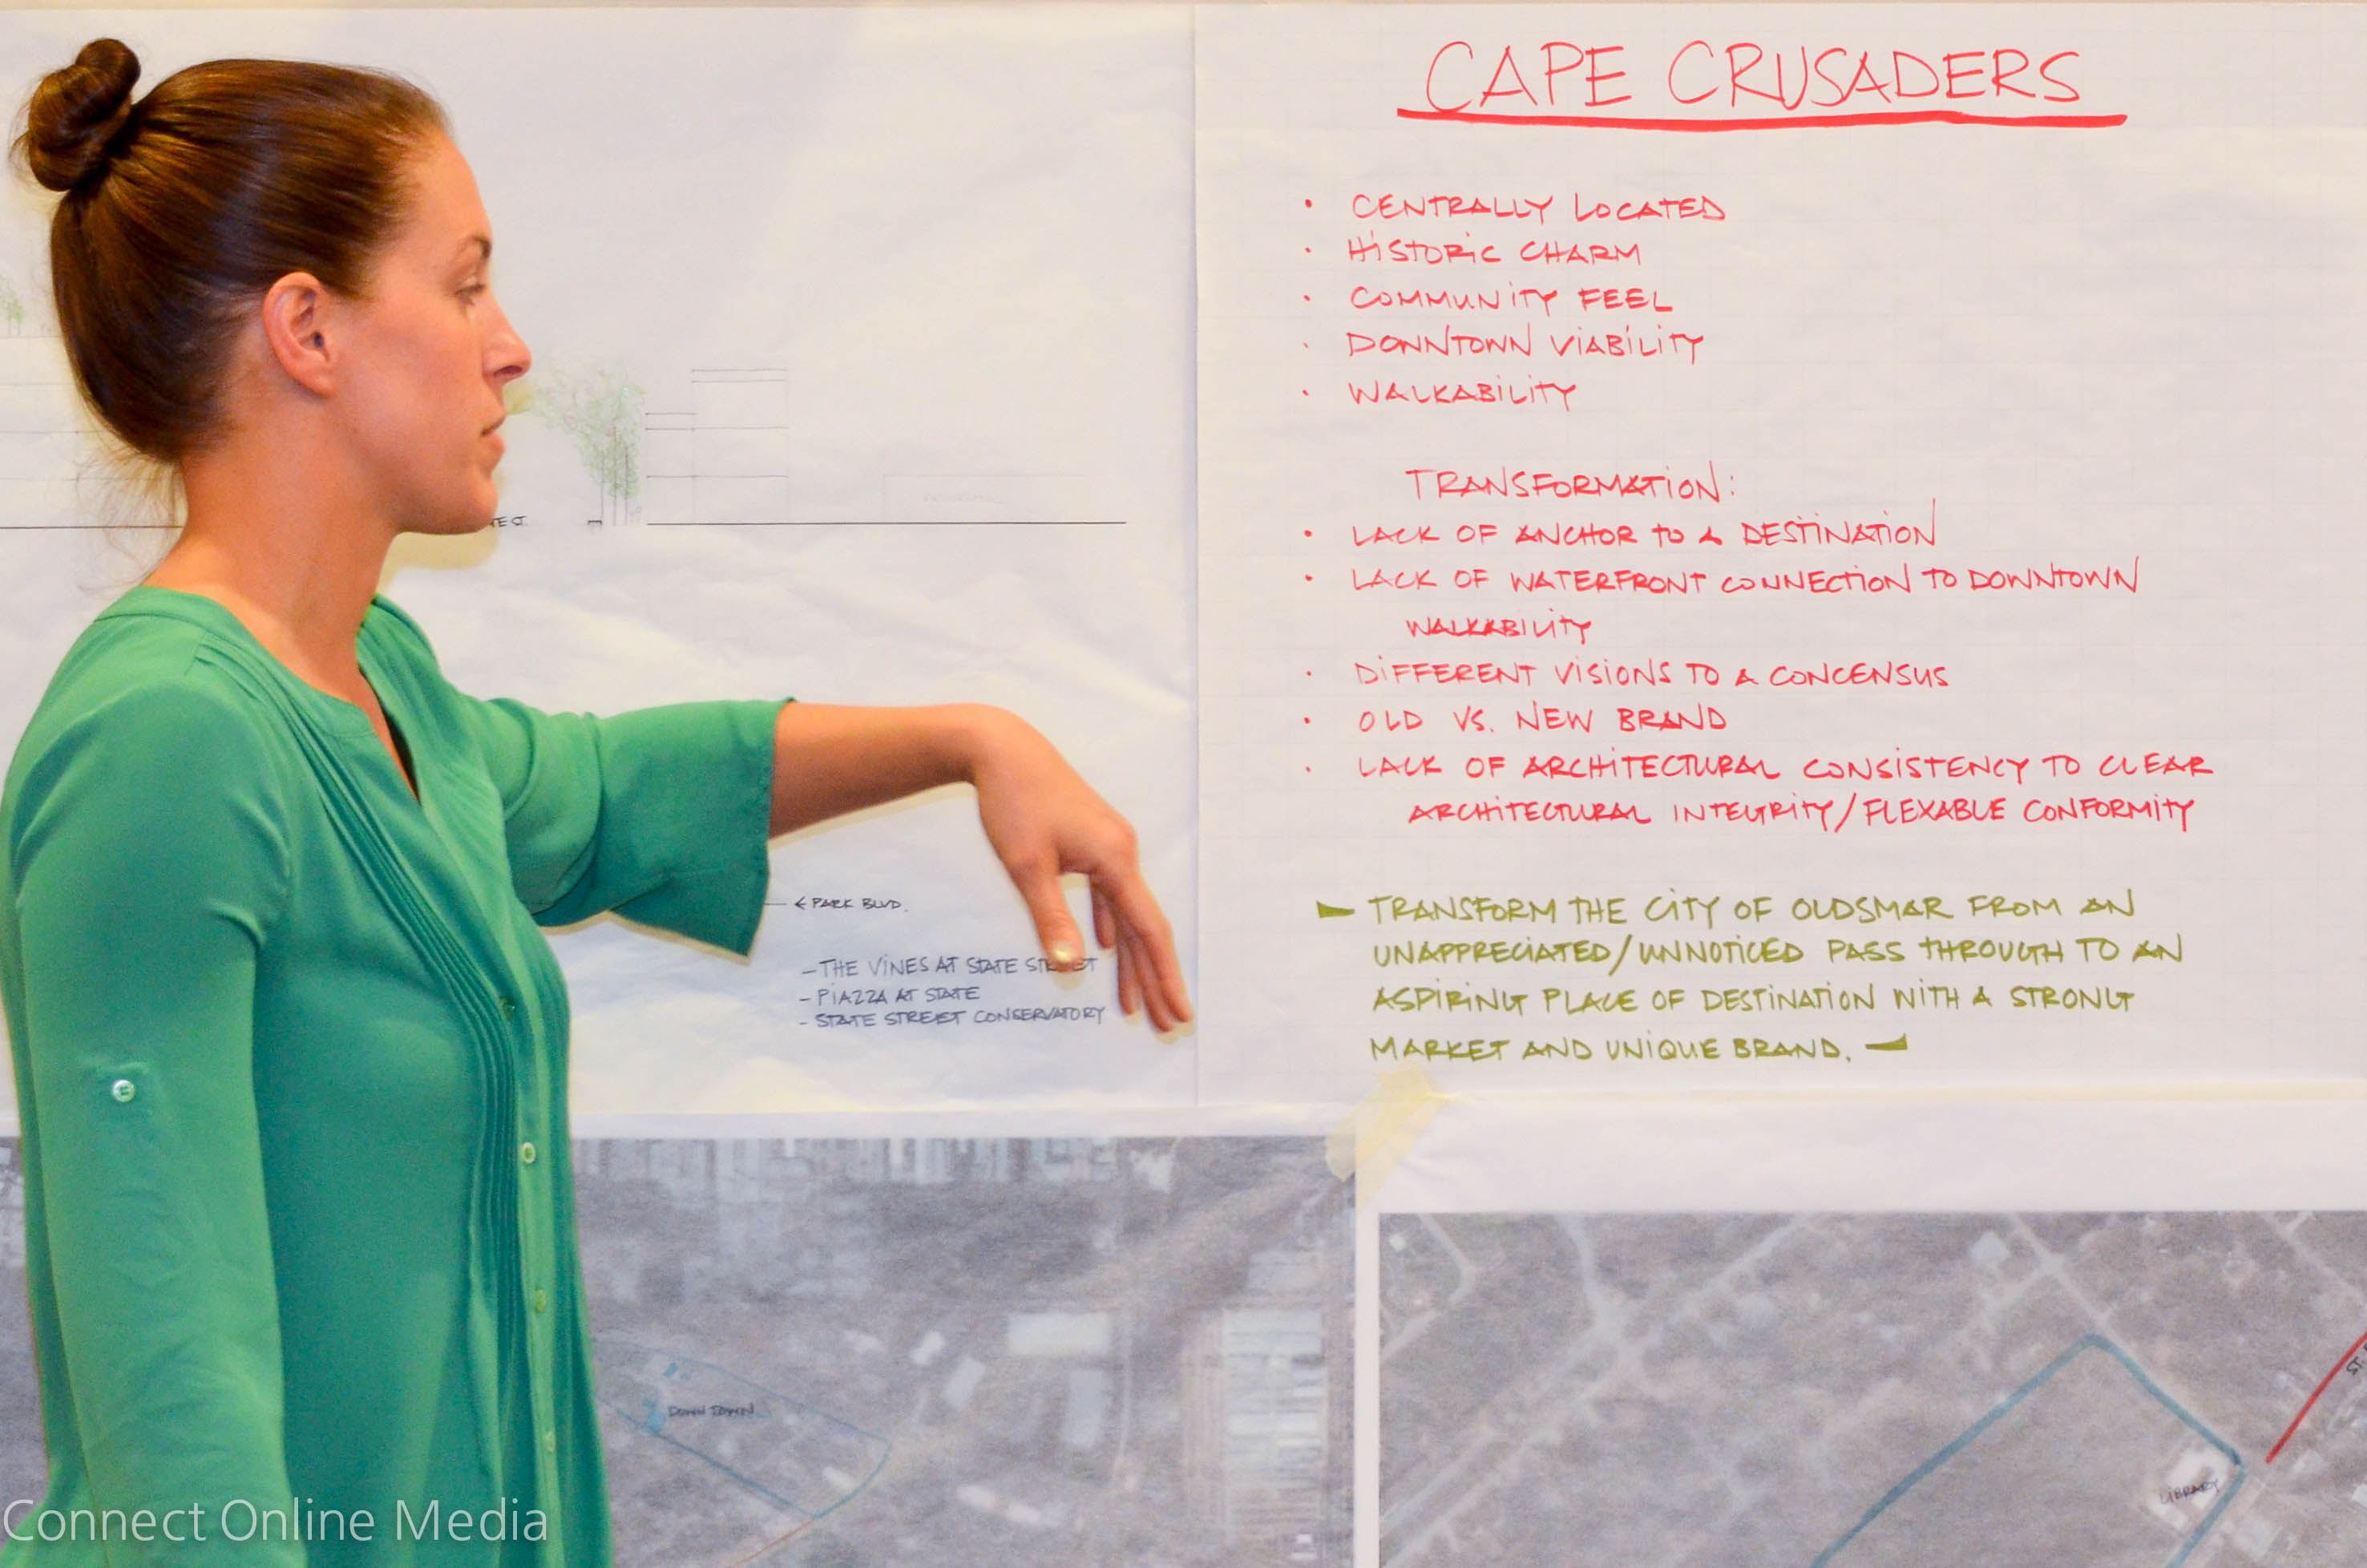 CAPE CRUSADERS
• CENTRALLY LOCATED
• HISTORIC CHARM
• COMMUNITY FEEL
• DOWNTOWN VIABILITY
• WALKABILITY
TRANSFORMATION:
• LACK OF ANCHOR TO A DESTINATION
• LACK OF WATERFRONT CONNECTION TO DOWNTOWN
WALKABILITY
• DIFFERENT VISIONS TO A CONCENSUS
• OLD VS. NEW BRAND
• LACK OF ARCHITECTURAL CONSISTENCY TO CLEAR
ARCHITECTURAL INTEGRITY/FLEXABLE CONFORMITY
- TRANSFORM THE CITY OF OLDSMAR FROM AN
UNAPPRECIATED/UNNOTICED PASS THROUGH TO AN
ASPIRING PLACE OF DESTINATION WITH A STRONG
MARKET AND UNIQUE BRAND. -
← PARK BLVD.
- THE VINES AT STATE STREET
- PIAZZA AT STATE
- STATE STREET CONSERVATORY
DOWNTOWN
LIBRARY
ST.
Connect Online Media